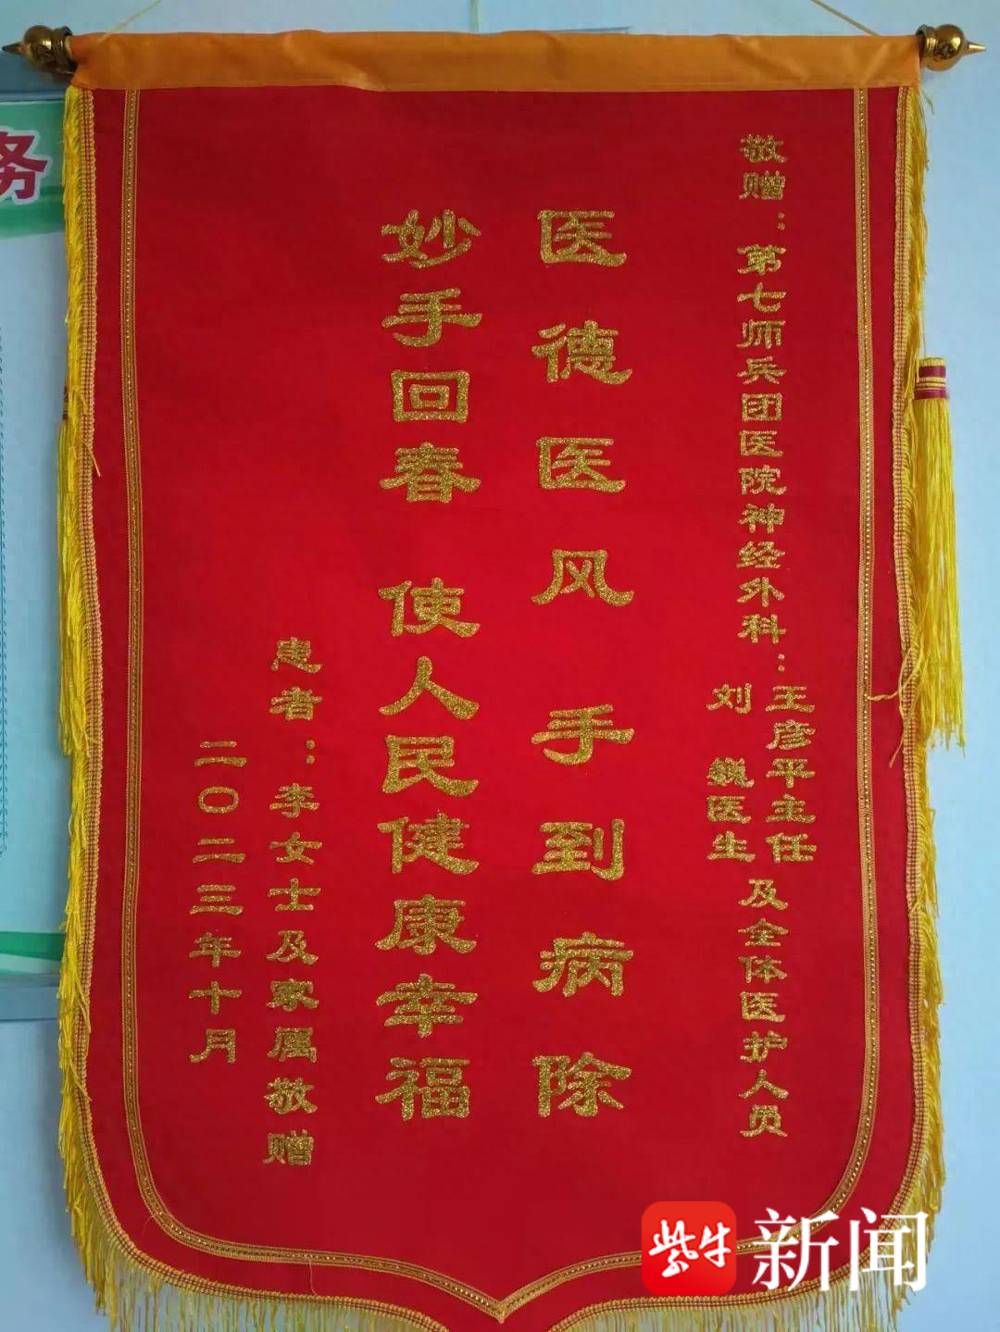 敬赠：第七师兵团医院神经外科：王彦平主任
刘巍医生
及全体医护人员
医德医风 手到病除
妙手回春 使人民健康幸福
患者：李女士及家属敬赠
二〇二三年十月
务
紫牛新闻